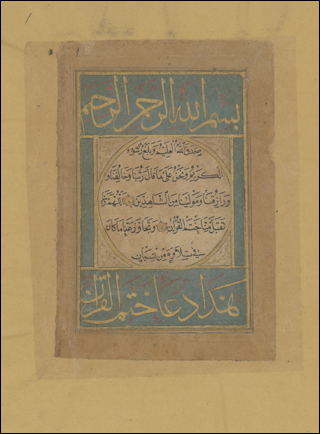 بسم الله الرحمن الرحيم
صدق الله العظيم وبلغ رسوله
الكريم ونحن على ما قال ربنا وخالقنا و
ورازقنا ومولنا من الشاهدين اللهم ربنا
تقبل منا ختم القرآن وتجاوز عنا ما كان
في تلاوته من نسيان
هذا دعا ختم القران